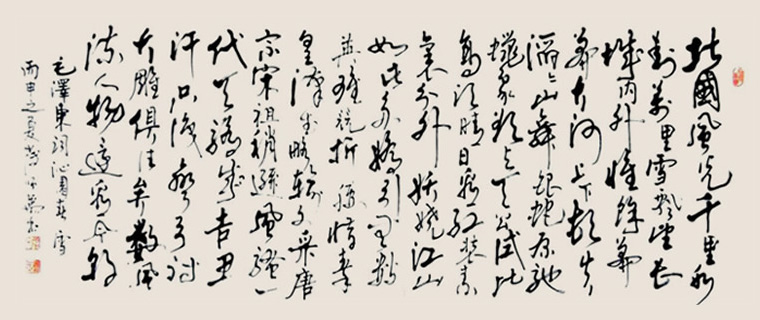 北國風光千里冰
封萬里雪飄望長
城內外惟餘莽
莽大河上下頓失
滔滔山舞銀蛇原馳
蠟象欲與天公試比
高須晴日看紅裝素
裹分外妖嬈江山
如此多嬌引無數
英雄競折腰惜秦
皇漢武略輸文采唐
宗宋祖稍遜風騷一
代天驕成吉思
汗只識彎弓射
大雕俱往矣數風
流人物還看今朝
毛澤東詞沁園春雪
丙申之夏